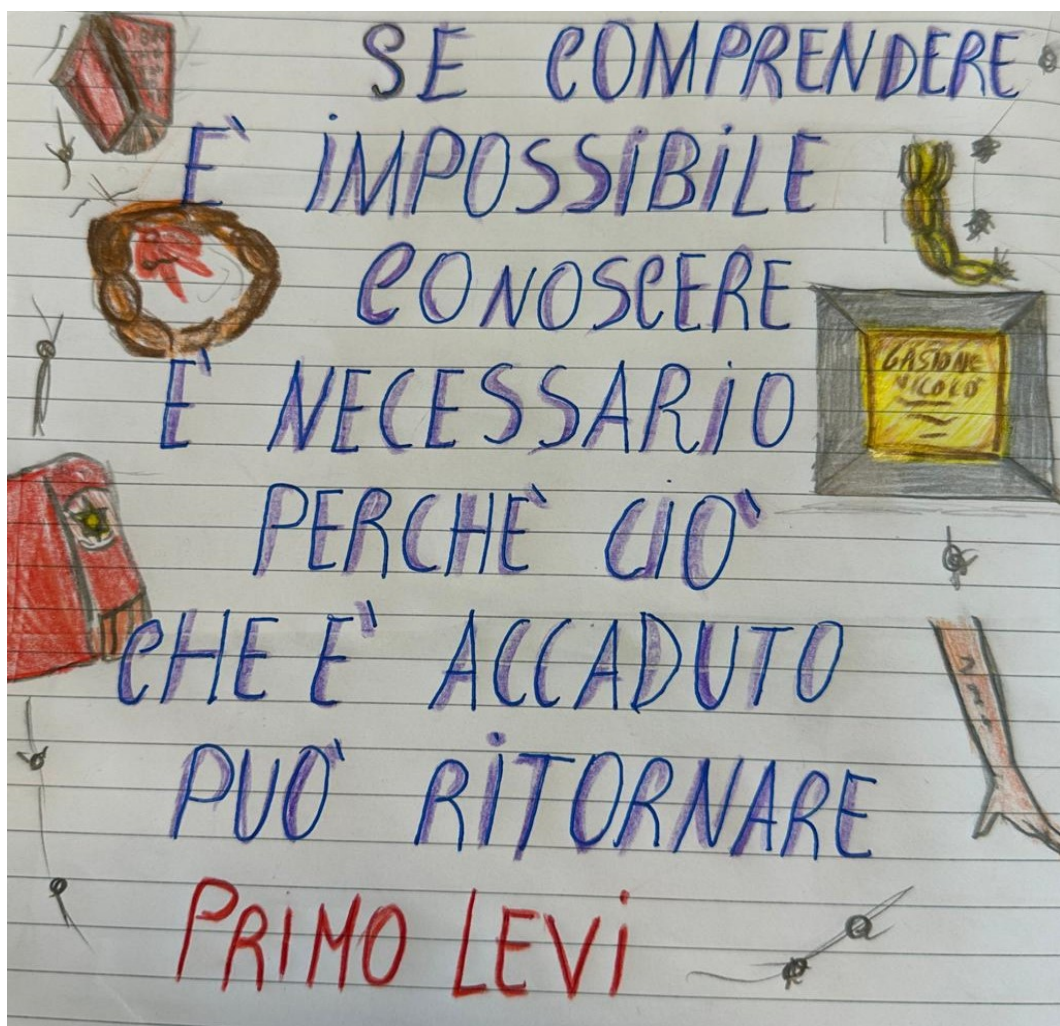 SE COMPRENDERE
E` iMPOSSiBiLE
CONOSCERE
E` NECESSARiO
PERCHE` CIO`
CHE E` ACCADUTO
PUO` RiTORNARE
PRIMO LEVi
GASTONE
NICOLO`